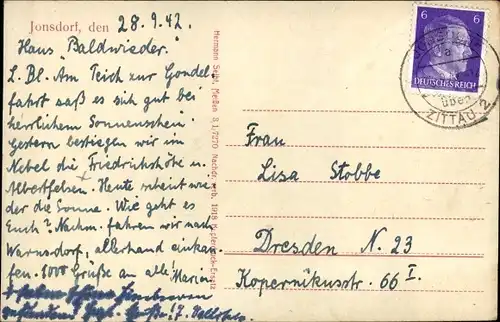 Jonsdorf, den 28.9.42.
Haus "Baldwieder."
L. Bl. Am Teich zur Gondel-
fahrt saß es sich gut bei
herrlichem Sonnenschein.
Gestern bestiegen wir im
Nebel die Friedrichshöhe u.
Albertfelsen. Heute scheint wie-
der die Sonne. Wie geht es
Euch? Nachm. fahren wir nach
Warnsdorf, allerhand einkau-
fen. 1000 Grüße an alle! Marion
Hermann Seibt, Meißen 3.1./7270 Nachdr. verb. 1918 Kupfertiefdruck-Ersatz
6 6
DEUTSCHES REICH
über
ZITTAU 2
Frau
Lisa Stobbe
Dresden N. 23
Kopernikusstr. 66 I.